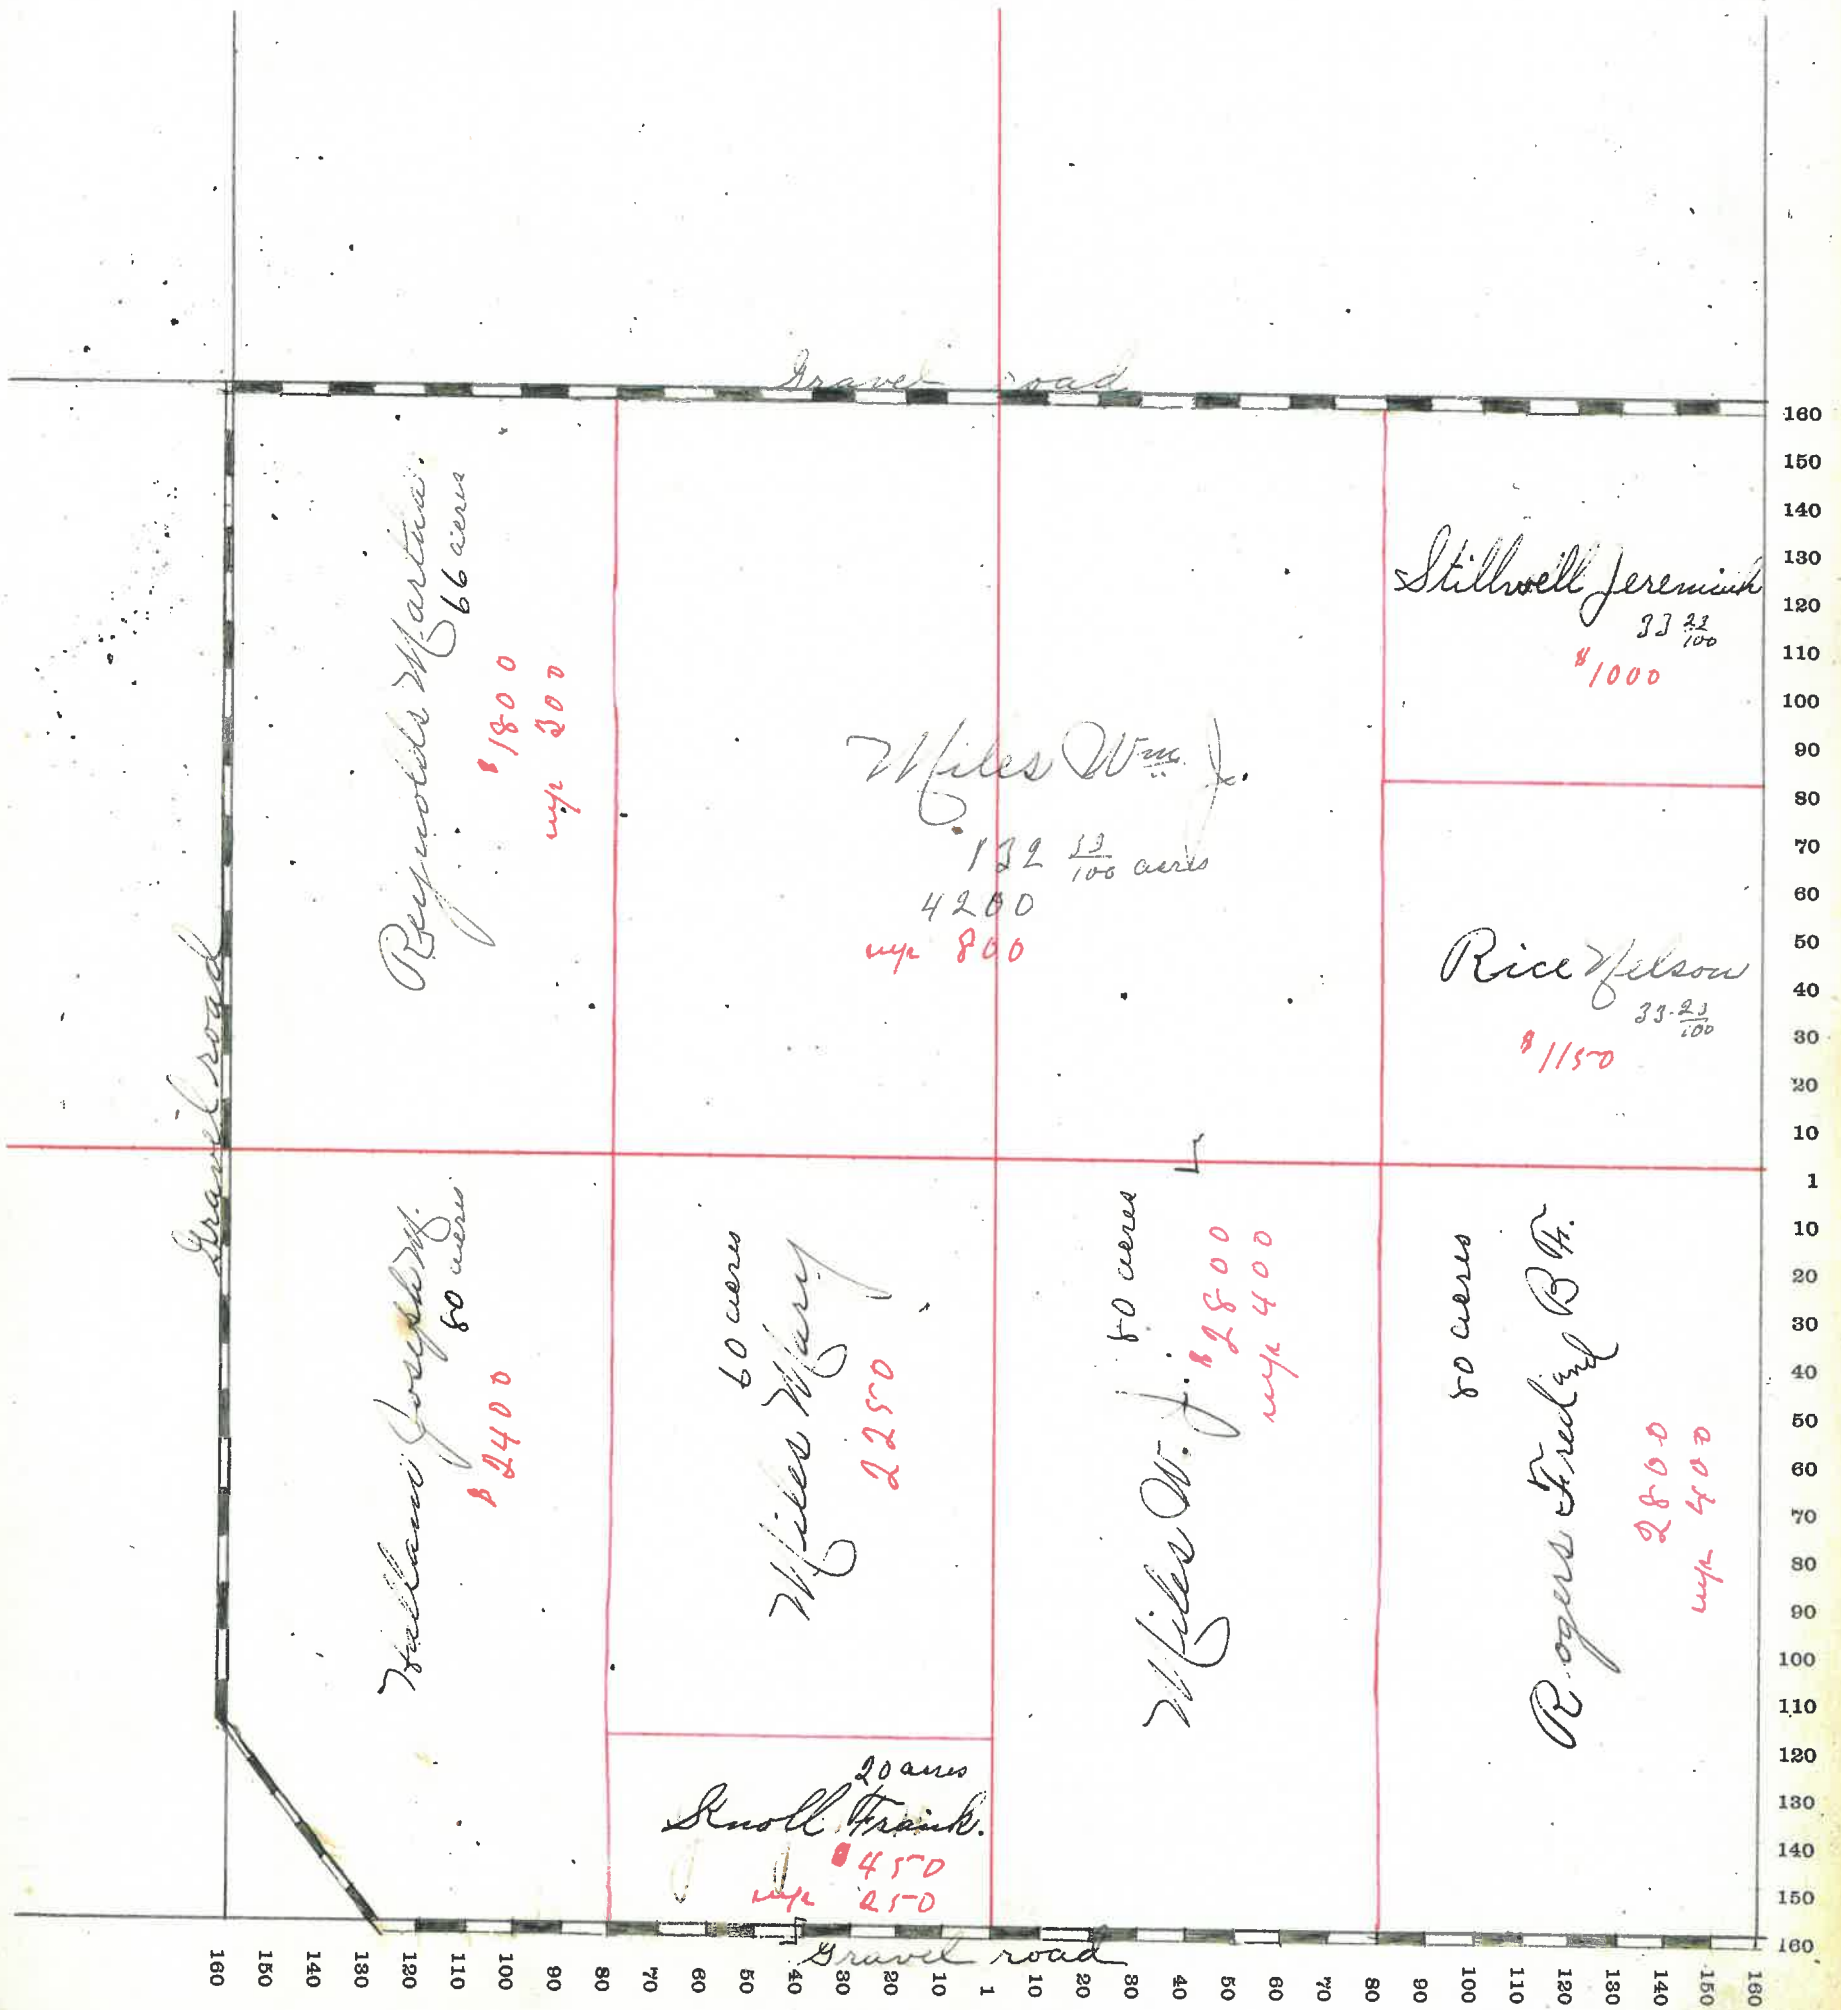 Gravel road
Reynolds Martha.
66 acres
$1800
imp 300
Miles Wm. J.
132 33/100 acres
4200
imp 800
Stillwell Jeremiah
33 23/100
$1000
Rice Nelson
33 23/100
$1150
Gravel road
Joseph M.
80 acres
$2400
60 acres
Miles Mary
2250
20 acres
Knoll Frank.
$450
imp 250
80 acres
Miles W. J.
$2800
imp 400
80 acres
Rogers Fred and B F.
2800
imp 400
Gravel road
160
150
140
130
120
110
100
90
80
70
60
50
40
30
20
10
1
10
20
30
40
50
60
70
80
90
100
110
120
130
140
150
160
160 150 140 130 120 110 100 90 80 70 60 50 40 30 20 10 1 10 20 30 40 50 60 70 80 90 100 110 120 130 140 150 160